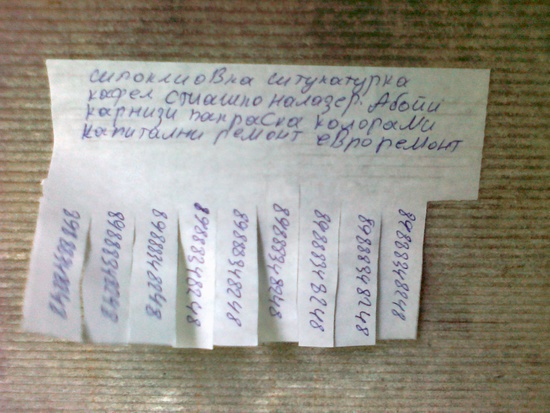 сипоклиовка ситукатурка
кафел стиашко налазер. Абойи
карнизи пакраска колорами
капитални ремонт евроремонт
89888348248
89888348248
89888348248
89888348248
89888348248
89888348248
89888348248
89888348248